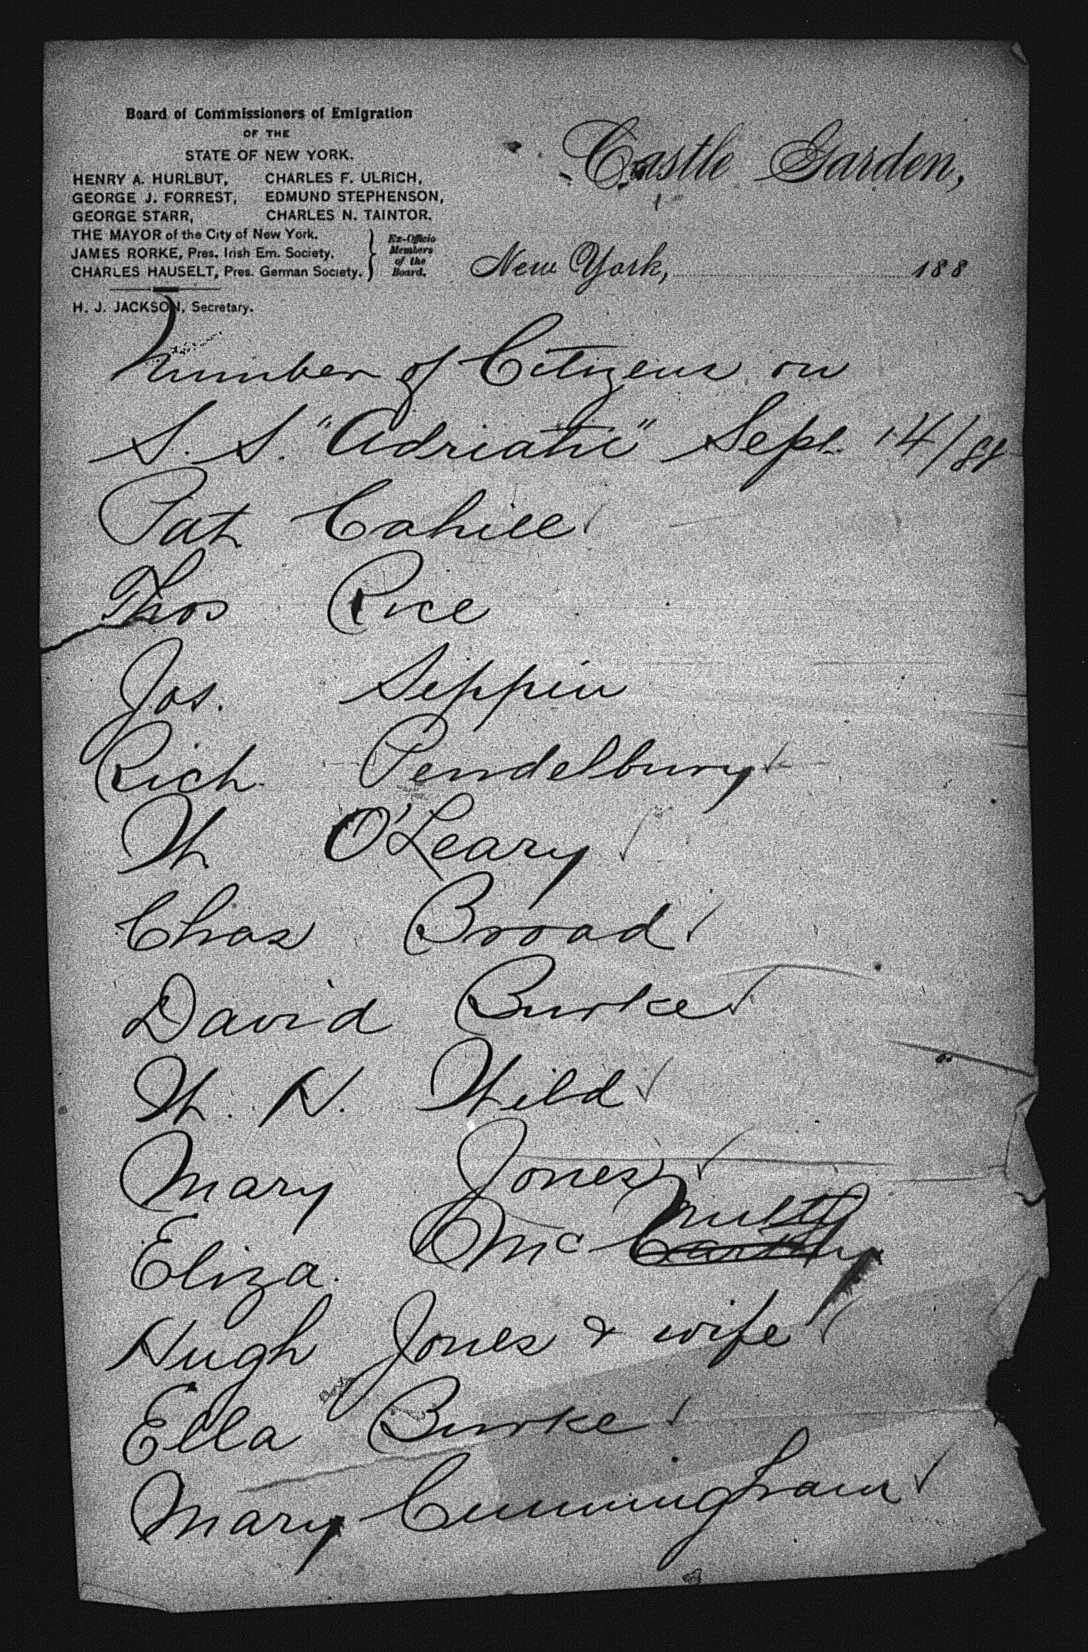 Board of Commissioners of Emigration
OF THE
STATE OF NEW YORK.
HENRY A. HURLBUT, CHARLES F. ULRICH,
GEORGE J. FORREST, EDMUND STEPHENSON,
GEORGE STARR, CHARLES N. TAINTOR.
THE MAYOR of the City of New York.
JAMES RORKE, Pres. Irish Em. Society.
CHARLES HAUSELT, Pres. German Society.
Ex-Officio
Members
of the
Board.
H. J. JACKSON, Secretary.
Castle Garden,
New York, 188
Number of Citizens on
S. S. "Adriatic" Sept. 14/88
Pat Cahill
Thos Rice
Jos. Seppin
Rich Pendelbury
W O'Leary
Chas Broad
David Burke
W. H. Wild
Mary Jones
Eliza. Mc Carthy Nulty
Hugh Jones & wife
Ella Burke
Mary Cunningham